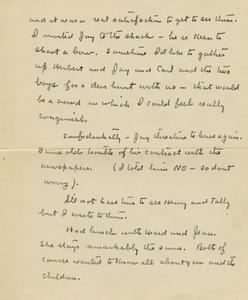 and it was a real satisfaction to get to see them.
I invited Jay to the shack - he is keen to
shoot a bow. Sometime I'd like to gather
up Herbert and Jay and Carl and the two
boys for a deer hunt with us - that would
be a crowd in which I could feel really
congenial.
Confidentially - Jay threatens to
again.
Same old trouble of his contract with the
newspapers. (I told him NO - so dont
worry.)
Did not have time to see Henry and Tally
but I wrote to them.
Had lunch with Ward and Jean.
She stays remarkably the same. Both of
course wanted to know all about you and the
children.